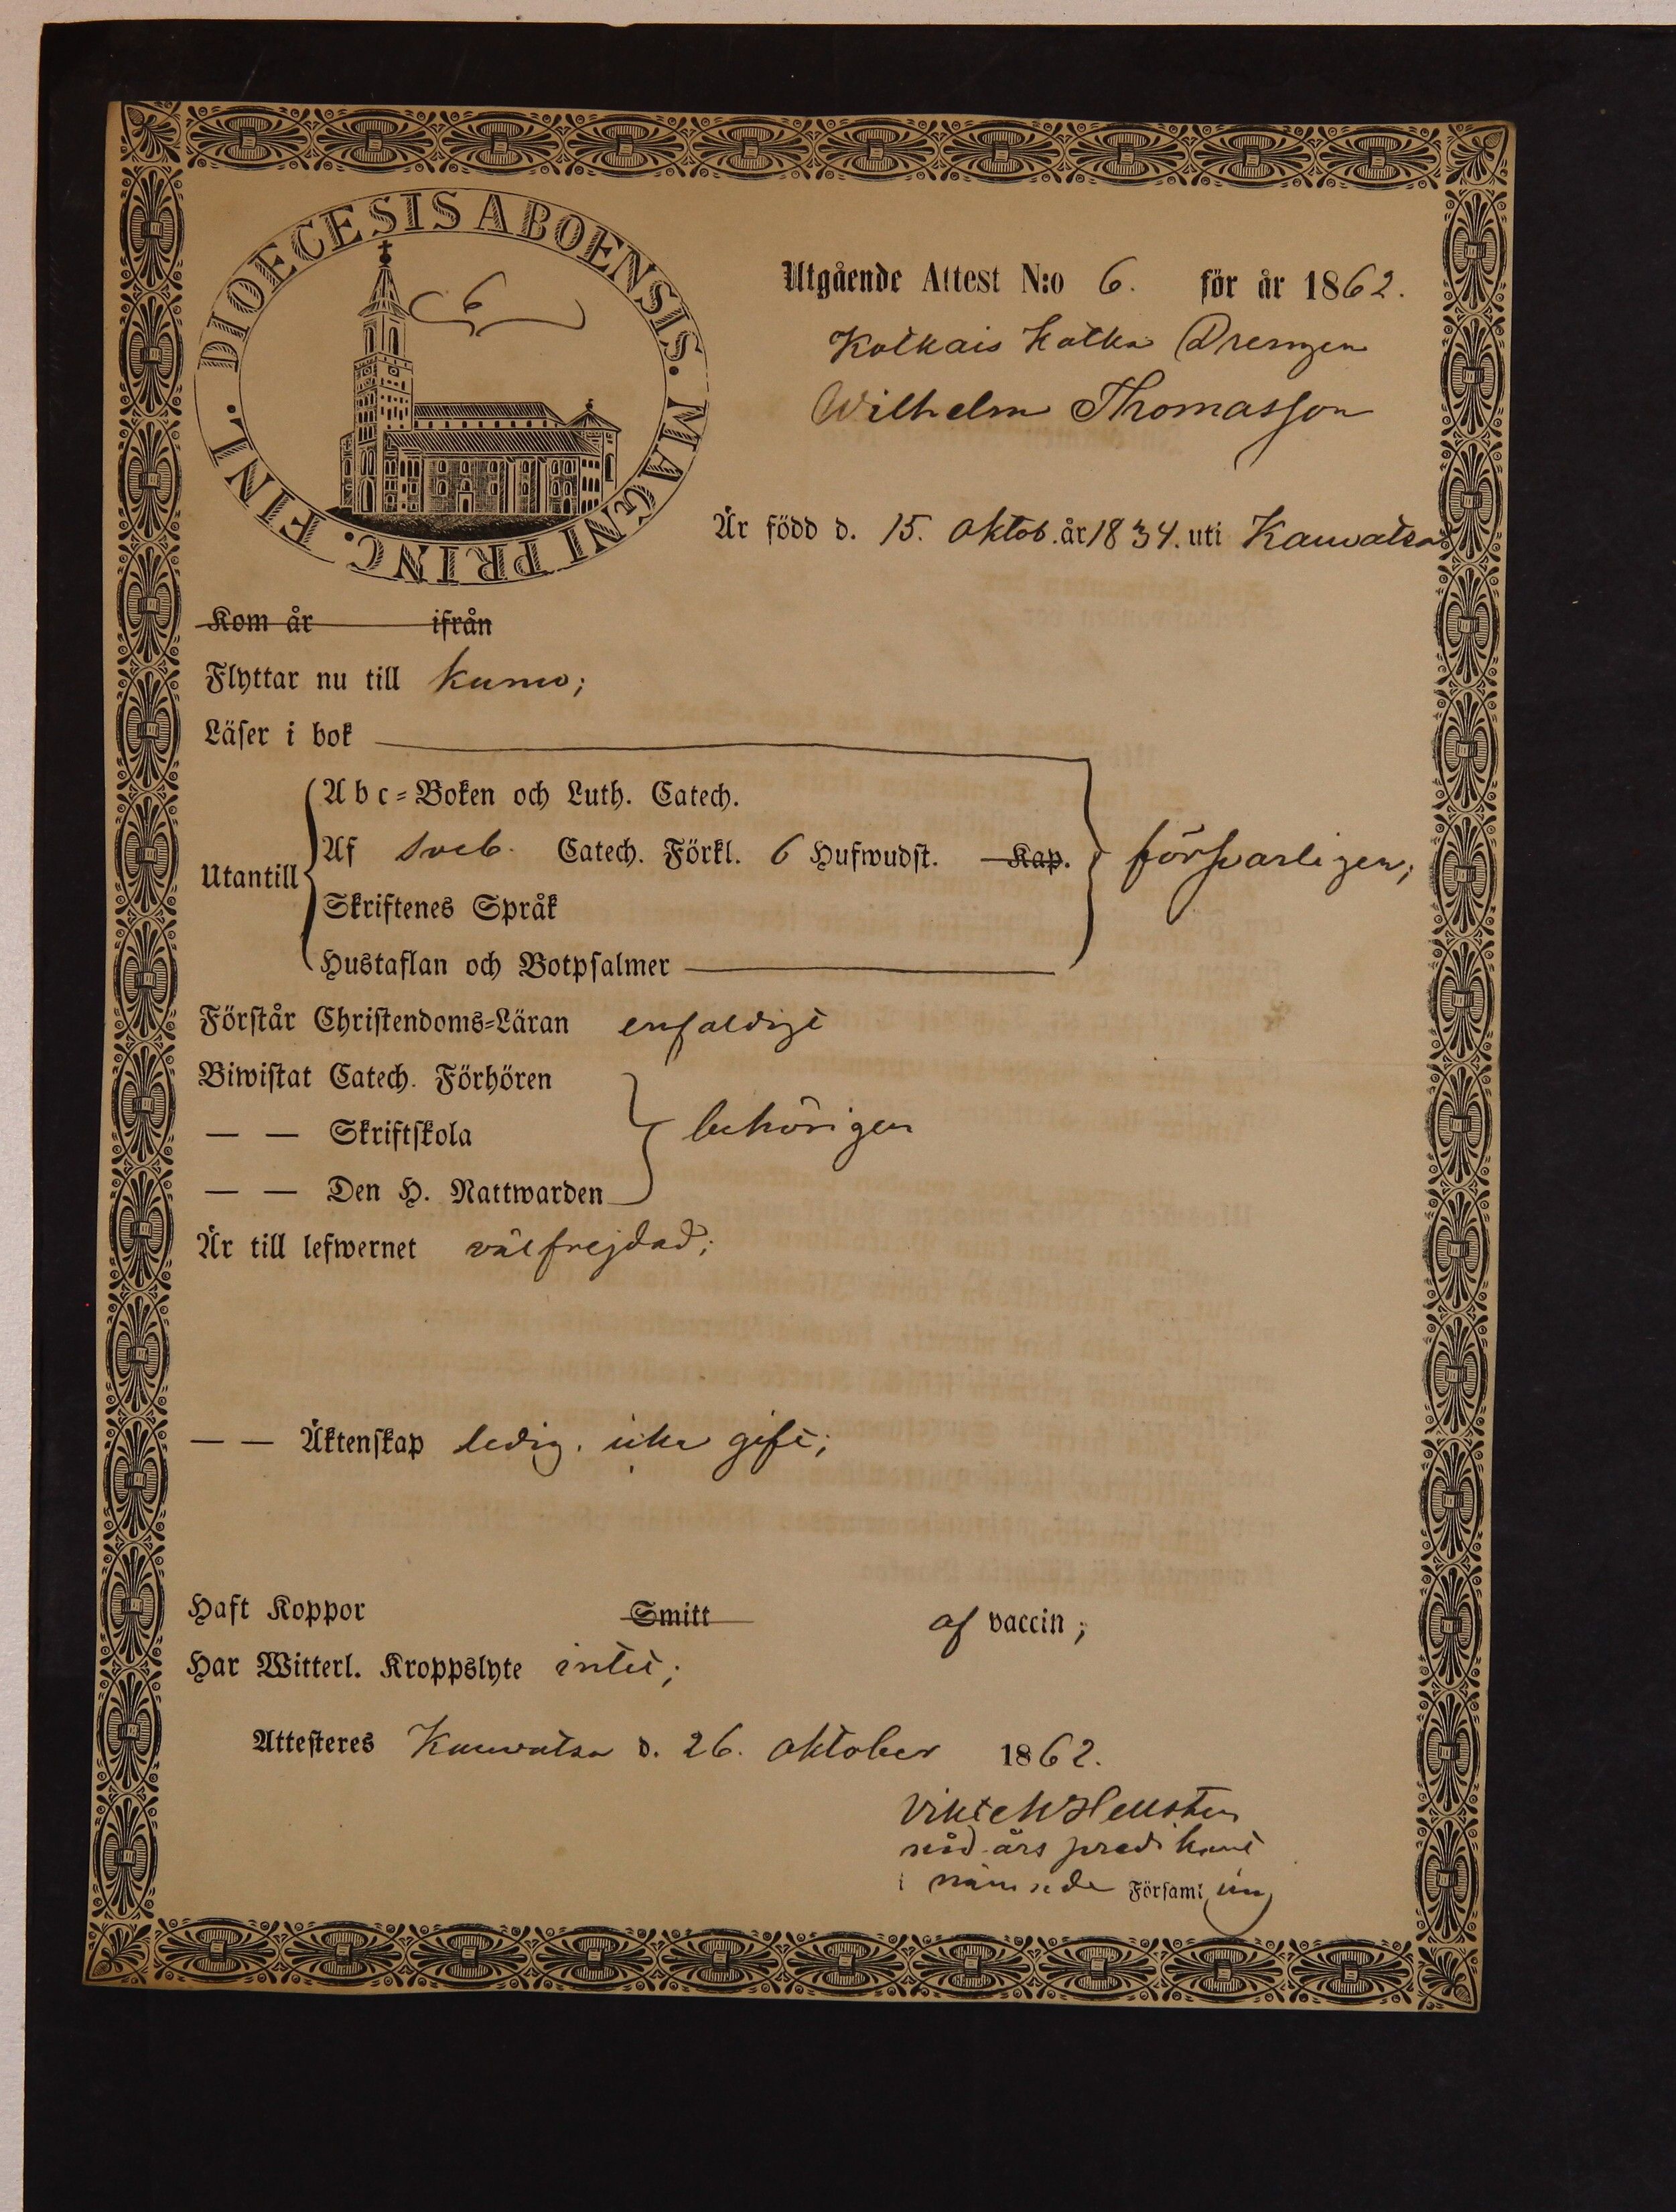 DIOECESIS ABOENSIS. MAGNI PRINC. FINL.
6
Utgående Attest N:o 6. för år 1862.
Kotkais Kotka Drengen
Wilhelm Thomasson
Är född d. 15. Oktob. år 1834. uti Kauvatsa
Kom år ifrån
Flyttar nu till Kumo;
Läser i bok
Abc-Boken och Luth. Catech.
Utantill Af Sveb. Catech. Förkl. 6 Hufwudst. Kap. försvarligen;
Skriftenes Språk
Hustaflan och Botpsalmer
Förstår Christendoms-Läran enfaldigt
Biwistat Catech. Förhören
— — Skriftskola behörigen
— — Den H. Nattwarden
Är till lefwernet välfrejdad;
— — Äktenskap ledig. icke gift;
Haft Koppor Smitt af vaccin;
Har Witterl. Kroppslyte intet;
Attesteres Kauvatsa d. 26. Oktober 1862.
nådårs predikant
i nämnde Församling